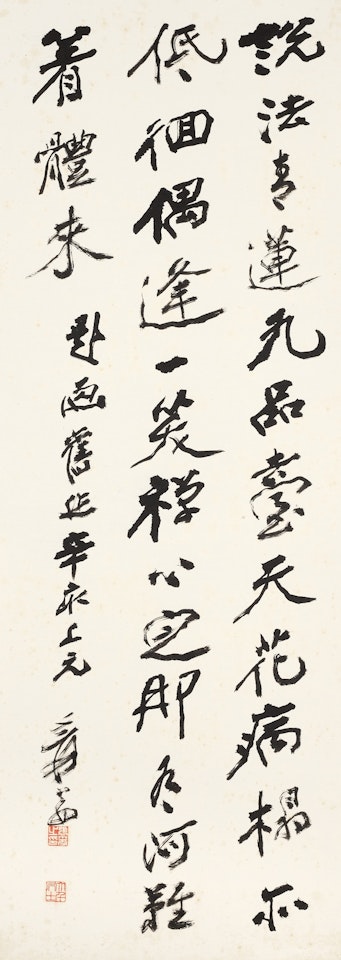 說法青蓮九品臺天花病榻亦
低徊偶逢一笑禪心定那有阿難
着體來
題畫舊作辛亥上元
爰翁